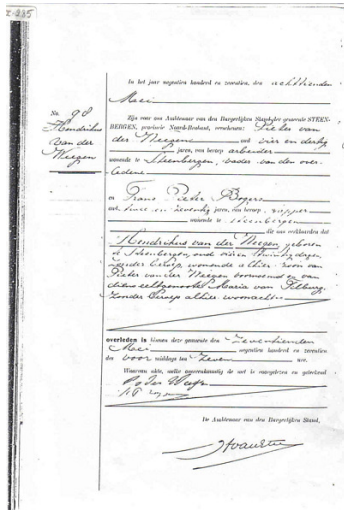 No. 98
Hendrikus
van der
Weegen
In het jaar negentien honderd en zeventien, den achttienden
Maai
Zijn voor ons Ambtenaar van den Burgerlijken Stand der gemeente STEEN-
BERGEN, provincie Noord-Brabant, verschenen: Pieter van
der Weegen oud vier en dertig
jaren, van beroep arbeider
wonende te Steenbergen, vader van den over-
ledene
en Frans Pieter Bogers
oud en zeventig jaren, van beroep
wonende te Steenbergen
die ons verklaarden dat
Hendrikus van der Weegen, geboren
te Steenbergen, oud vier en twintig dagen
zonder beroep wonende alhier zoon van
Pieter van der Weegen voornoemd en van
diens echtgenoote Maria van Tilburg
zonder beroep alhier woonachtig
overleden is binnen deze gemeente den zeventienden
Maai negentien honderd en zeventien
des voor middags ten zeven ure.
Waarvan akte, welke overeenkomstig de wet is voorgelezen en geteekend
De Ambtenaar van den Burgerlijken Stand,